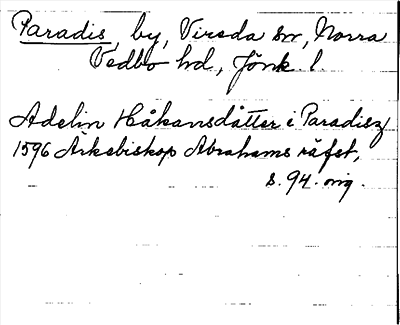 Paradis, by, Vireda sn, Norra
Vedbo hd, Jönk. l.
Adelin Håkansdåtter i Paradisz
1596 Ärkebiskop Abrahams räfst,
s. 94. orig.